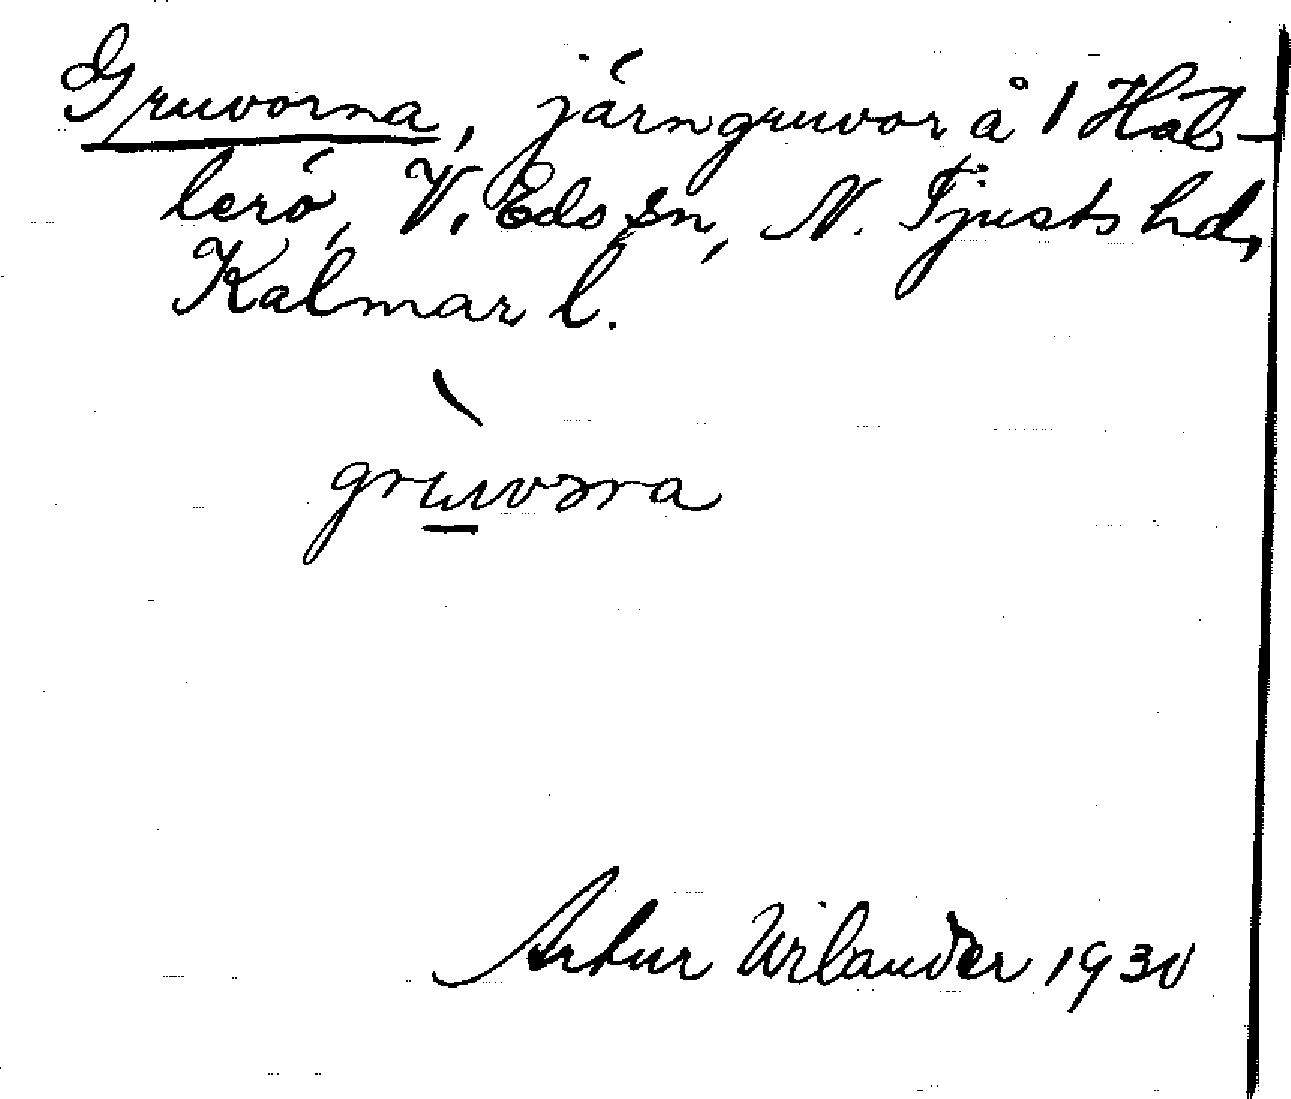 Gruvorna, järngruvor å 1 Häl-
lerö, V. Eds sn, N. Tjusts hd,
Kalmar l.
grùvorna
Artur Wilander 1930